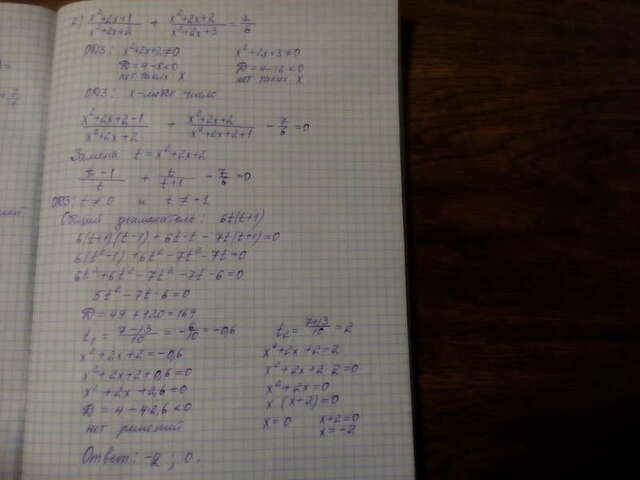 2) (x²+2x+1)/(x²+2x+2) + (x²+2x+2)/(x²+2x+3) = 7/6
ОДЗ: x²+2x+2≠0 x²+2x+3≠0
D=4-8<0 D=4-12<0
нет таких x нет таких x
ОДЗ: x-любое число
(x²+2x+2-1)/(x²+2x+2) + (x²+2x+2)/(x²+2x+2+1) - 7/6 =0
Замена t=x²+2x+2
(t-1)/t + t/(t+1) - 7/6 =0
ОДЗ: t≠0 и t≠-1
Общий знаменатель: 6t(t+1)
6(t+1)(t-1)+6t·t-7t(t+1)=0
6(t²-1)+6t²-7t²-7t=0
6t²+6t²-7t²-7t-6=0
5t²-7t-6=0
D=49+120=169
t₁=(7-13)/10=-6/10=-0,6 t₂=(7+13)/10=2
x²+2x+2=-0,6 x²+2x+2=2
x²+2x+2+0,6=0 x²+2x+2-2=0
x²+2x+2,6=0 x²+2x=0
D=4-4·2,6<0 x(x+2)=0
нет решений x=0 x+2=0
x=-2
Ответ: -2; 0.